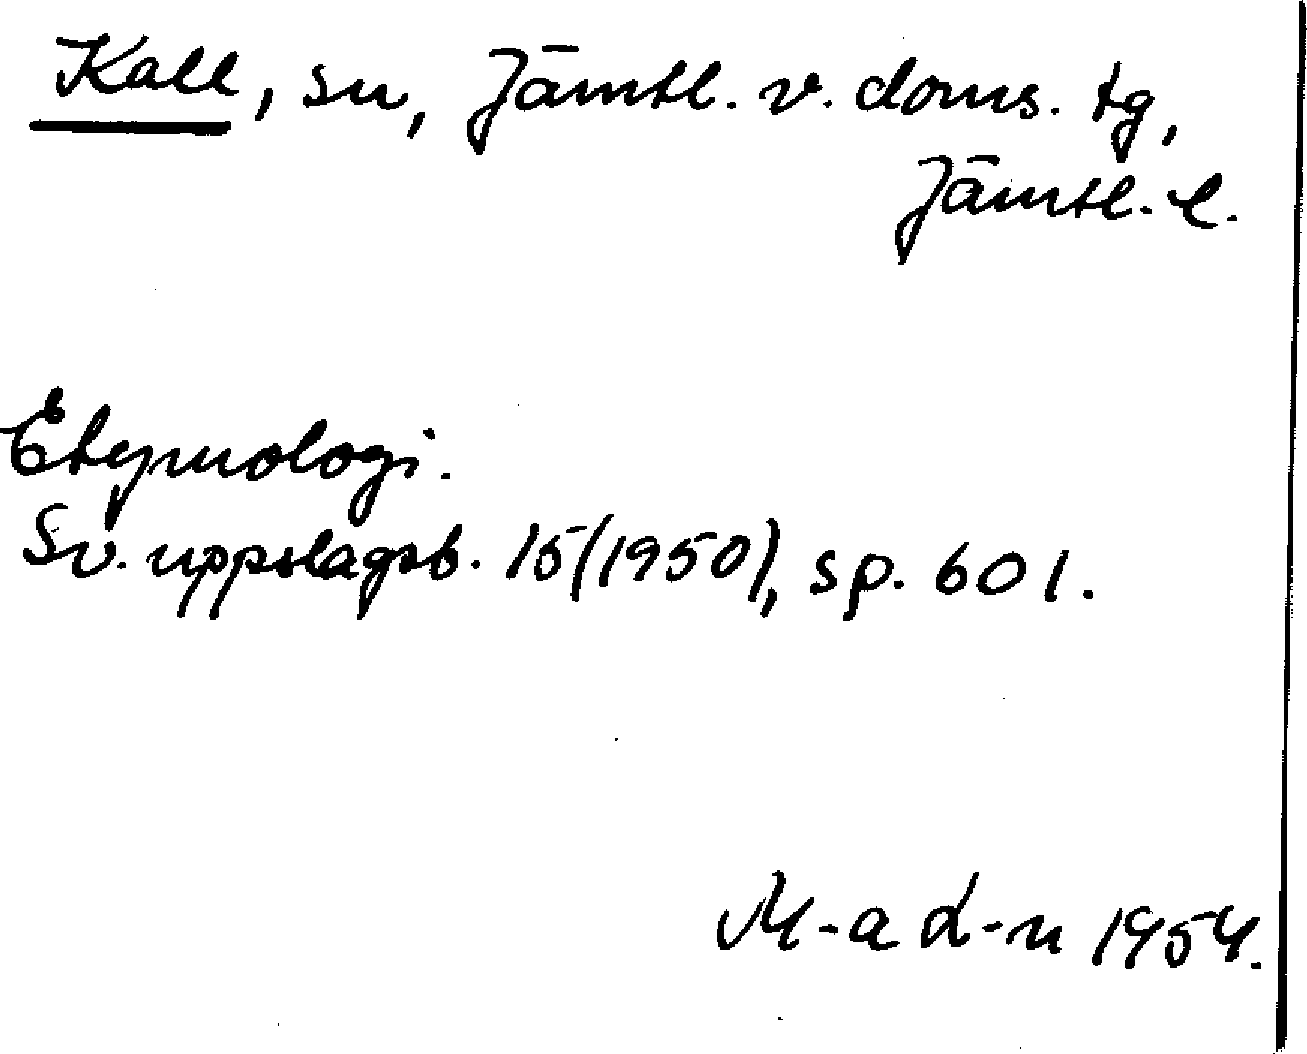 Kall, sn, Jämtl. v. doms. tg,
Jämtl. l.
Etymologi.
Sv. uppslagsb. 15 (1950), sp. 601.
M-a d-n 1954.